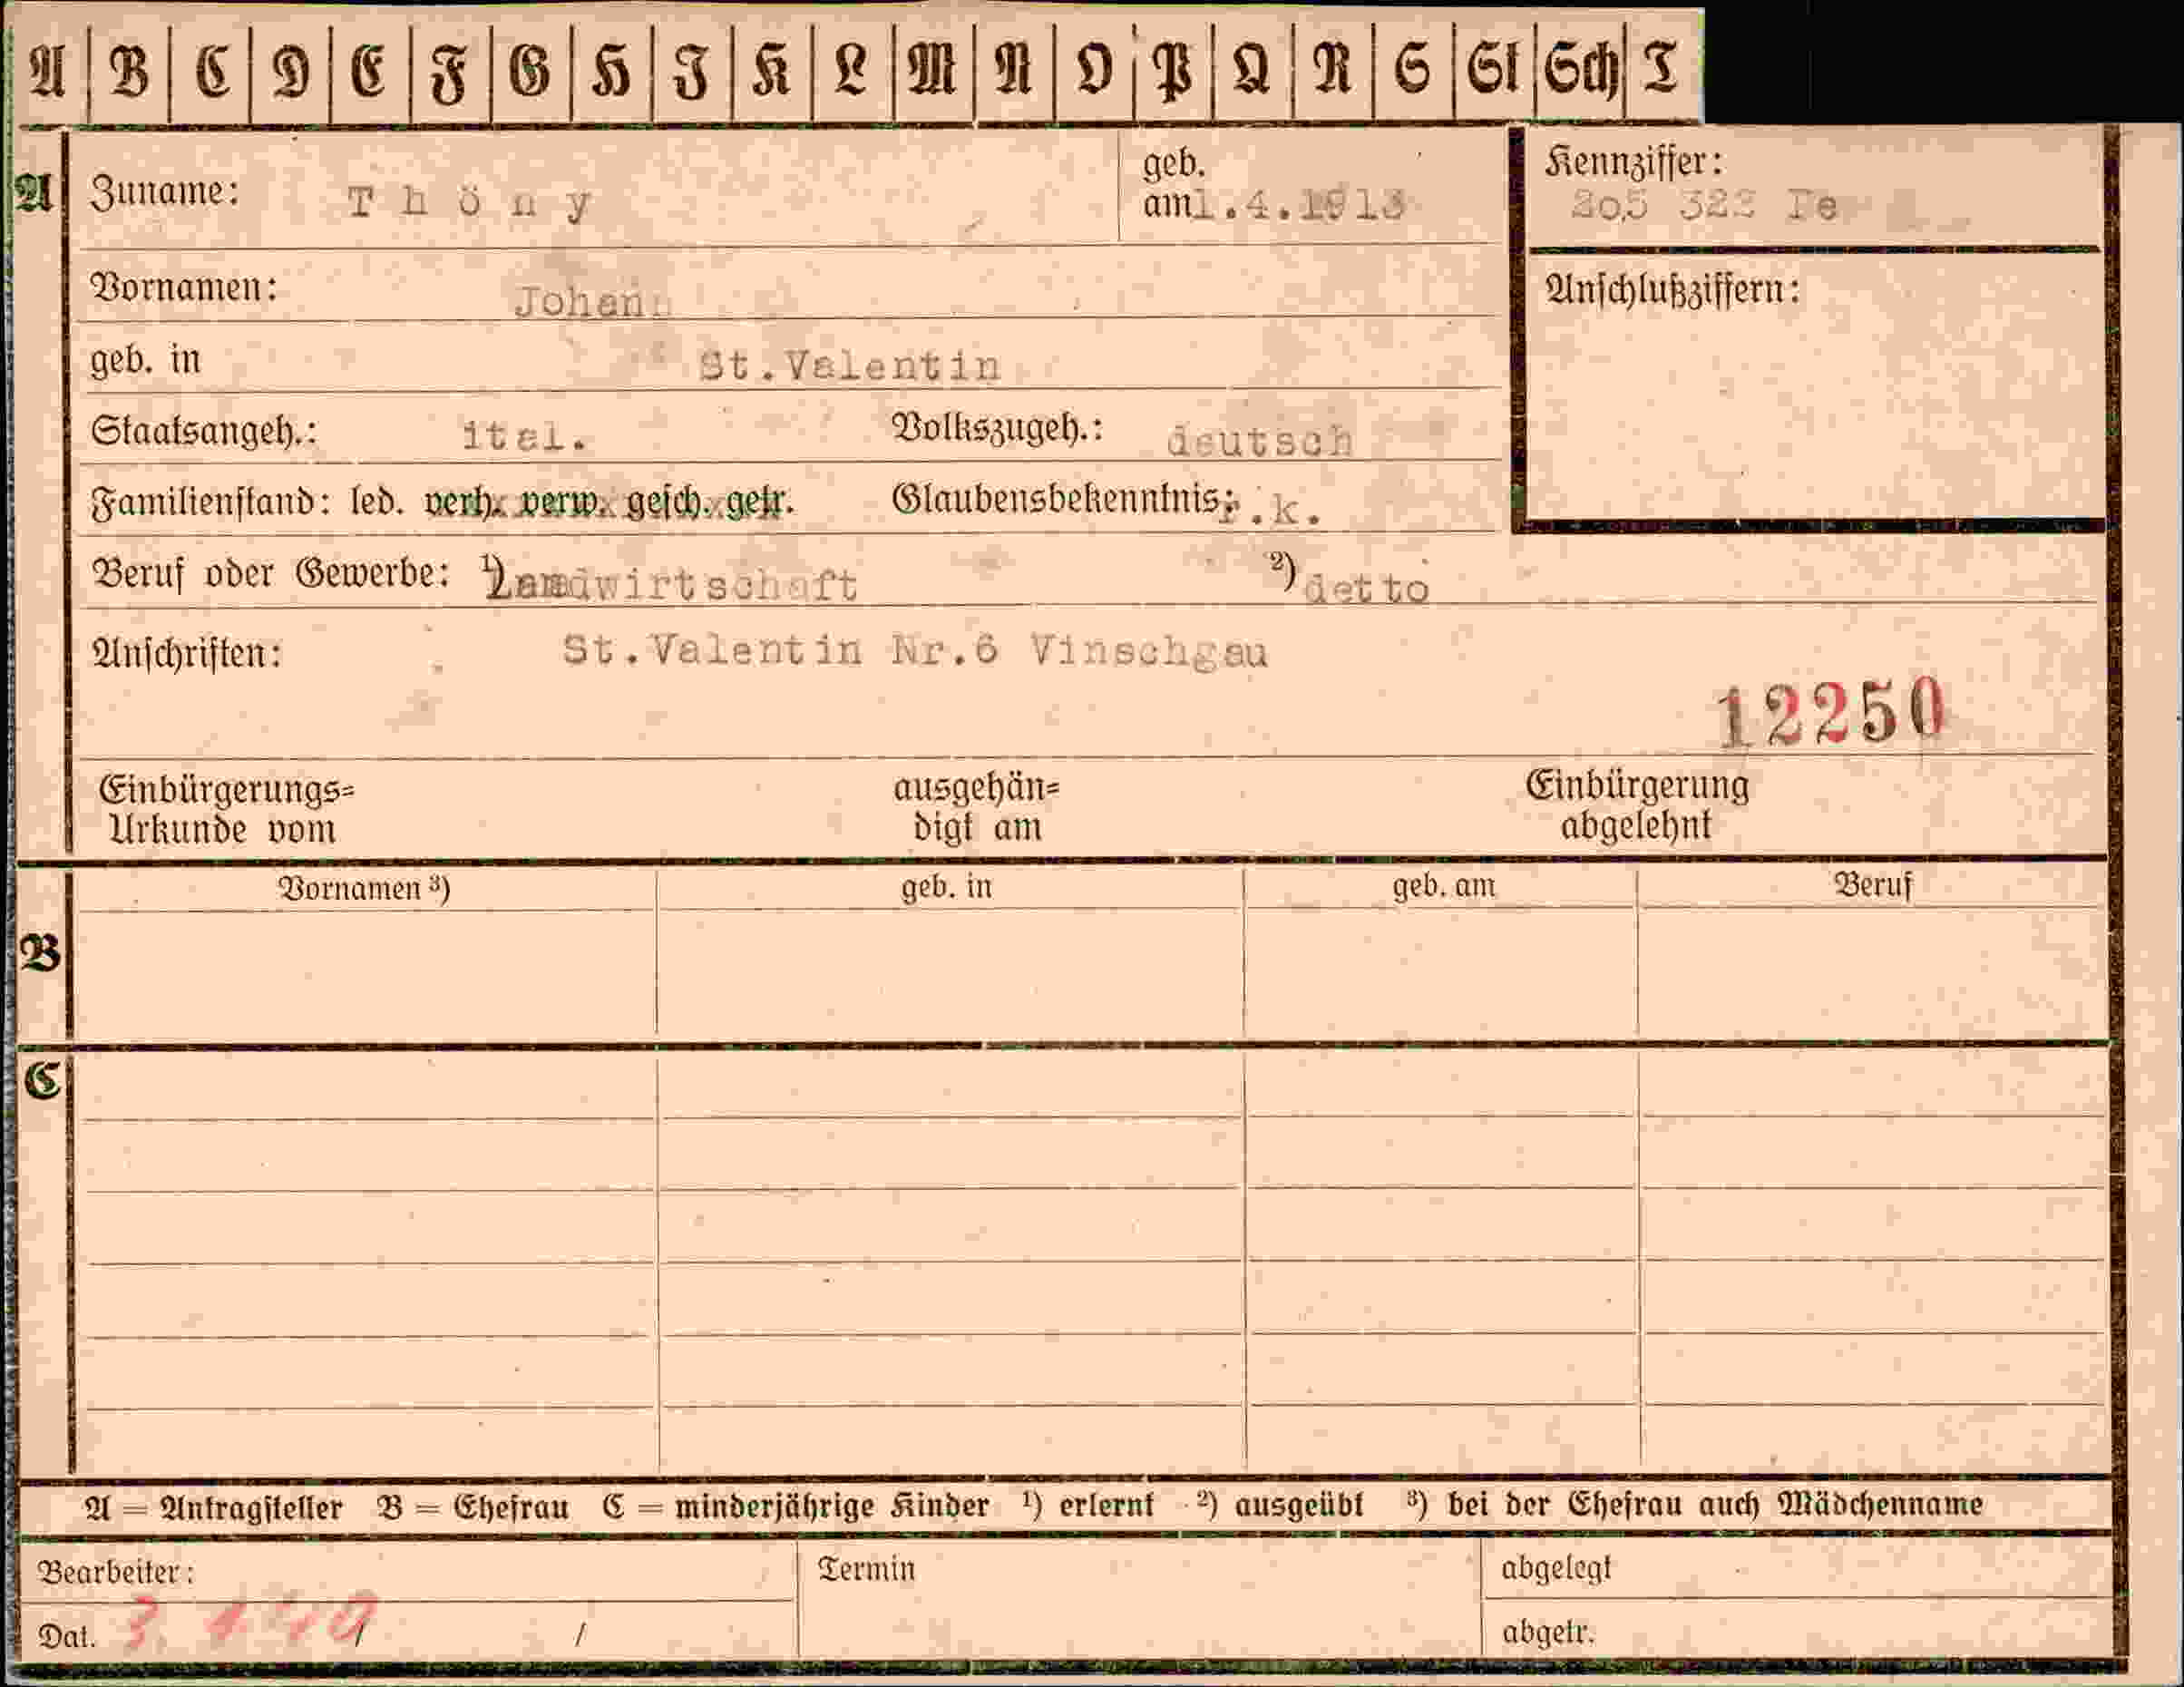 A B C D E F G H I K L M N O P Q R S St Sch T
A Zuname: Thöny geb. am 1.4.1913 Kennziffer: 205 322 Pe
Vornamen: Johann Anschlußziffern:
geb. in St.Valentin
Staatsangeh.: ital. Volkszugeh.: deutsch
Familienstand: led. verh. verw. gesch. getr. Glaubensbekenntnis: r.k.
Beruf oder Gewerbe: ¹) Landwirtschaft ²) detto
Anschriften: St.Valentin Nr.6 Vinschgau
12250
Einbürgerungs= ausgehän= Einbürgerung
Urkunde vom digt am abgelehnt
Vornamen ³) geb. in geb. am Beruf
B
C
A = Antragsteller B = Ehefrau C = minderjährige Kinder ¹) erlernt ²) ausgeübt ³) bei der Ehefrau auch Mädchenname
Bearbeiter: Termin abgelegt
Dat. / / abgetr.